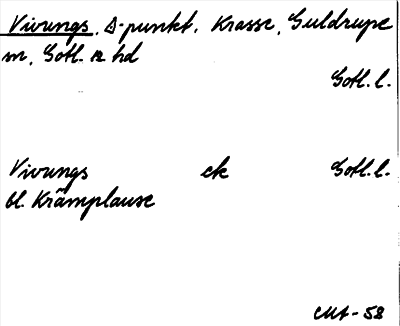 Vivungs, Δ-punkt, Krasse, Guldrupe
sn, Gotl. n hd
Gotl.l.
Vivungs ek Gotl.l.
bl. Krämplause